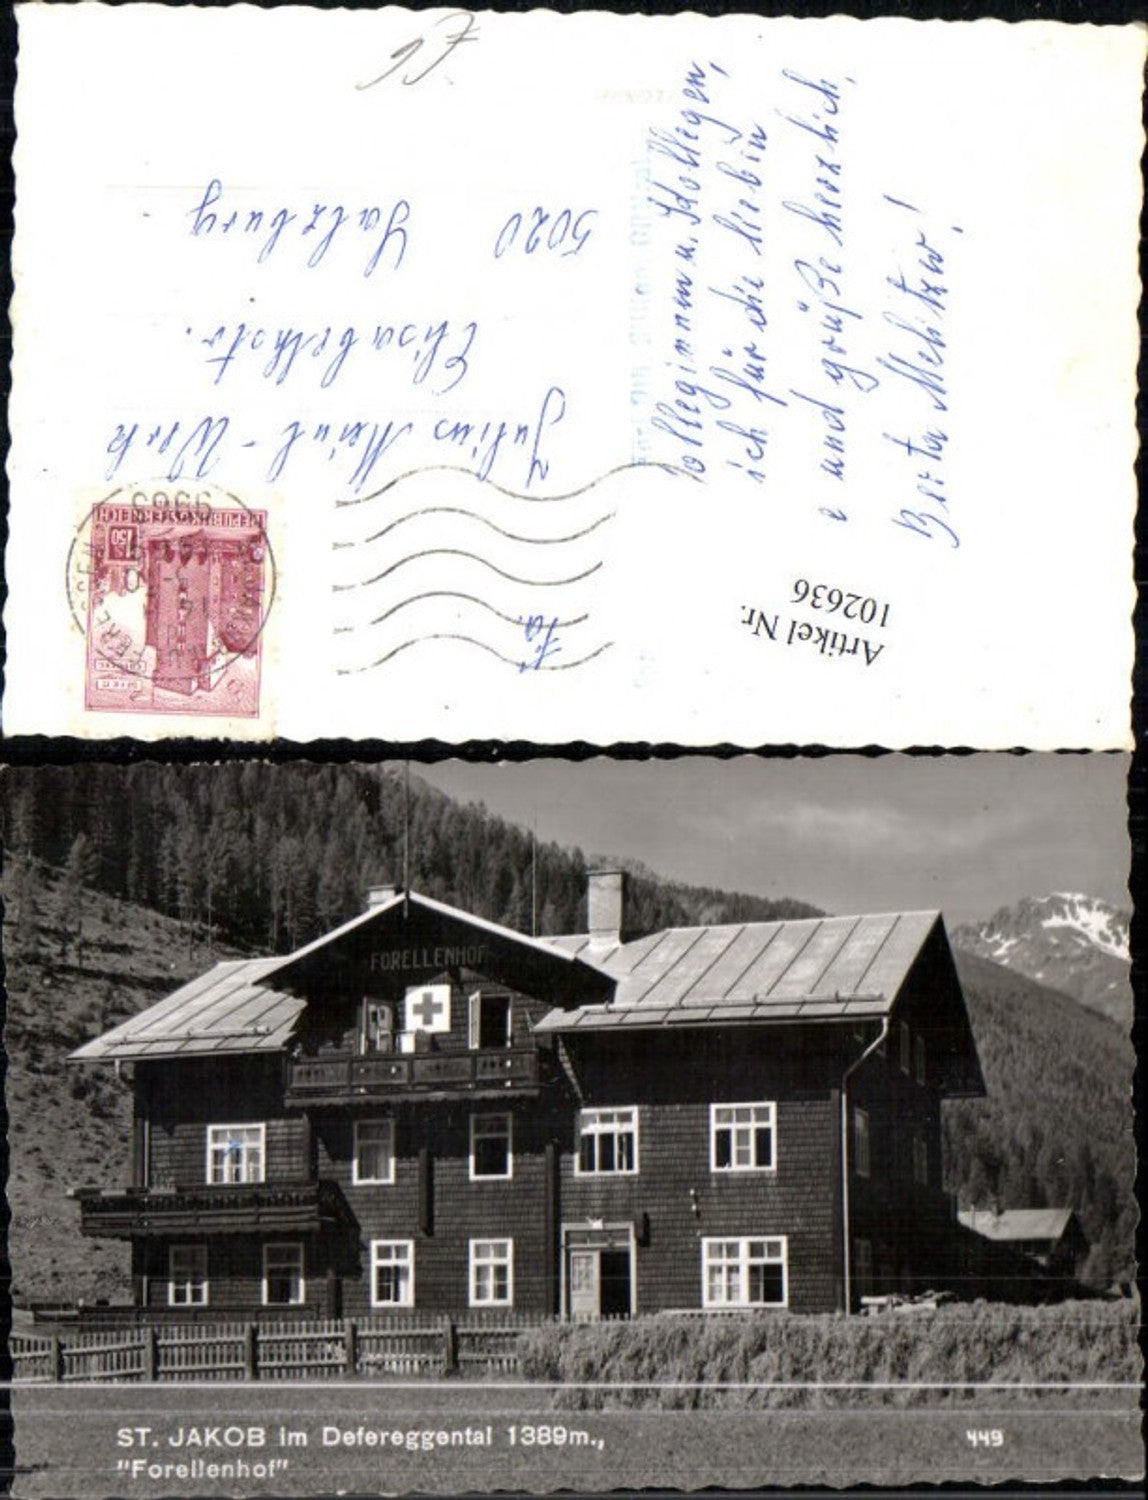 Kolleginnen u. Kollegen,
ich für die lieben
e und grüße herzlich,
Berta
Fa.
Julius Meinl-Werk
Elisabethstr.
5020 Salzburg.
REPUBLIK ÖSTERREICH
1.50
WIEN
9963
Artikel Nr.
102636
FORELLENHOF
ST. JAKOB im Defereggental 1389m.,
"Forellenhof"
449